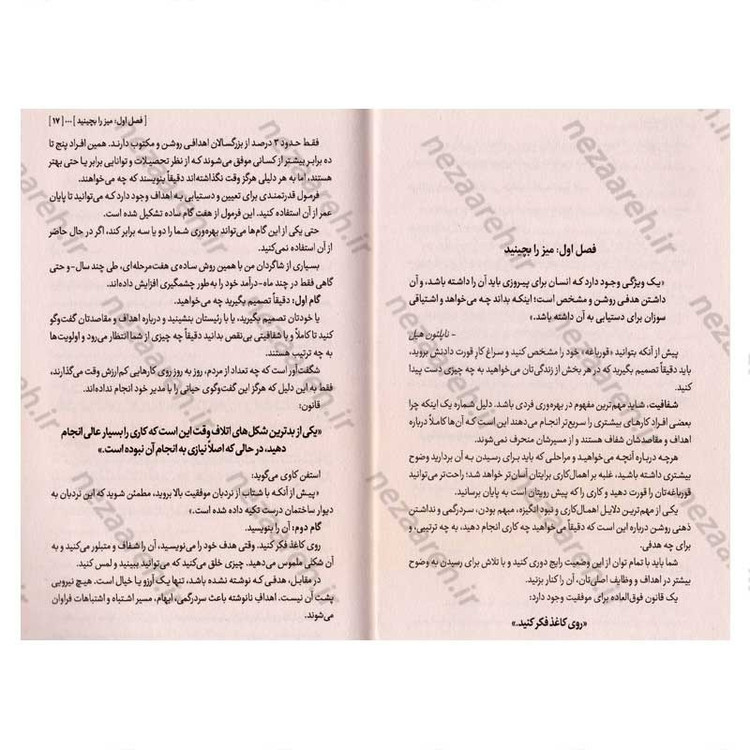 فصل اول: میز را بچینید
«یک ویژگی وجود دارد که انسان برای پیروزی باید آن را داشته باشد، و آن
داشتن هدفی روشن و مشخص است؛ اینکه بداند چه می‌خواهد و اشتیاقی
سوزان برای دستیابی به آن داشته باشد.»
- ناپلئون هیل
پیش از آنکه بتوانید «قورباغه» خود را مشخص کنید و سراغ کار قورت دادنش بروید،
باید دقیقاً تصمیم بگیرید که در هر بخش از زندگی‌تان می‌خواهید به چه چیزی دست پیدا
کنید.
شفافیت، شاید مهم‌ترین مفهوم در بهره‌وری فردی باشد. دلیل شماره یک اینکه چرا
بعضی افراد کارهای بیشتری را سریع‌تر انجام می‌دهند، این است که آن‌ها کاملاً درباره
اهداف و مقاصدشان شفاف هستند و از مسیرشان منحرف نمی‌شوند.
هرچه درباره آنچه می‌خواهید و مراحلی که باید برای رسیدن به آن بردارید وضوح
بیشتری داشته باشید، غلبه بر اهمال‌کاری برایتان آسان‌تر خواهد شد؛ راحت‌تر می‌توانید
قورباغه‌تان را قورت دهید و کاری را که پیش رویتان است به پایان برسانید.
یکی از مهم‌ترین دلایل اهمال‌کاری و نبود انگیزه، مبهم بودن، سردرگمی و نداشتن
ذهنی روشن درباره این است که دقیقاً می‌خواهید چه کاری انجام دهید، به چه ترتیبی، و
برای چه هدفی.
شما باید با تمام توان از این وضعیت رایج دوری کنید و با تلاش برای رسیدن به وضوح
بیشتر در اهداف و وظایف اصلی‌تان، آن را کنار بزنید.
یک قانون فوق‌العاده برای موفقیت وجود دارد:
«روی کاغذ فکر کنید.»
[ فصل اول: میز را بچینید ] ... [ ۱۷ ]
فقط حدود ۳ درصد از بزرگسالان اهدافی روشن و مکتوب دارند. همین افراد پنج تا
ده برابر بیشتر از کسانی موفق می‌شوند که از نظر تحصیلات و توانایی برابر یا حتی بهتر
هستند، اما به هر دلیلی هرگز وقت نگذاشته‌اند دقیقاً بنویسند که چه می‌خواهند.
فرمول قدرتمندی برای تعیین و دستیابی به اهداف وجود دارد که می‌توانید تا پایان
عمر از آن استفاده کنید. این فرمول از هفت گام ساده تشکیل شده است.
حتی یکی از این گام‌ها می‌تواند بهره‌وری شما را دو یا سه برابر کند، اگر در حال حاضر
از آن استفاده نمی‌کنید.
بسیاری از شاگردان من با همین روش ساده‌ی هفت‌مرحله‌ای، طی چند سال-و حتی
گاهی فقط در چند ماه-درآمد خود را به‌طور چشمگیری افزایش داده‌اند.
گام اول: دقیقاً تصمیم بگیرید چه می‌خواهید.
یا خودتان تصمیم بگیرید، یا با رئیستان بنشینید و درباره اهداف و مقاصدتان گفت‌وگو
کنید تا کاملاً و با شفافیتی بی‌نقص بدانید دقیقاً چه چیزی از شما انتظار می‌رود و اولویت‌ها
به چه ترتیب هستند.
شگفت‌آور است که چه تعداد از مردم، روز به روز روی کارهایی کم‌ارزش وقت می‌گذارند،
فقط به این دلیل که هرگز این گفت‌وگوی حیاتی را با مدیر خود انجام نداده‌اند.
قانون:
«یکی از بدترین شکل‌های اتلاف وقت این است که کاری را بسیار عالی انجام
دهید، در حالی که اصلاً نیازی به انجام آن نبوده است.»
استفن کاوی می‌گوید:
«پیش از آنکه با شتاب از نردبان موفقیت بالا بروید، مطمئن شوید که این نردبان به
دیوار ساختمان درست تکیه داده شده است.»
گام دوم: آن را بنویسید.
روی کاغذ فکر کنید. وقتی هدف خود را می‌نویسید، آن را شفاف و متبلور می‌کنید و به
آن شکلی ملموس می‌دهید. چیزی خلق می‌کنید که می‌توانید ببینید و لمس کنید.
در مقابل، هدفی که نوشته نشده باشد، تنها یک آرزو یا خیال است. هیچ نیرویی
پشت آن نیست. اهداف نانوشته باعث سردرگمی، ابهام، مسیر اشتباه و اشتباهات فراوان
می‌شوند.
nezaareh.ir
nezaareh.ir
nezaareh.ir
nezaareh.ir
nezaareh.ir
nezaareh.ir